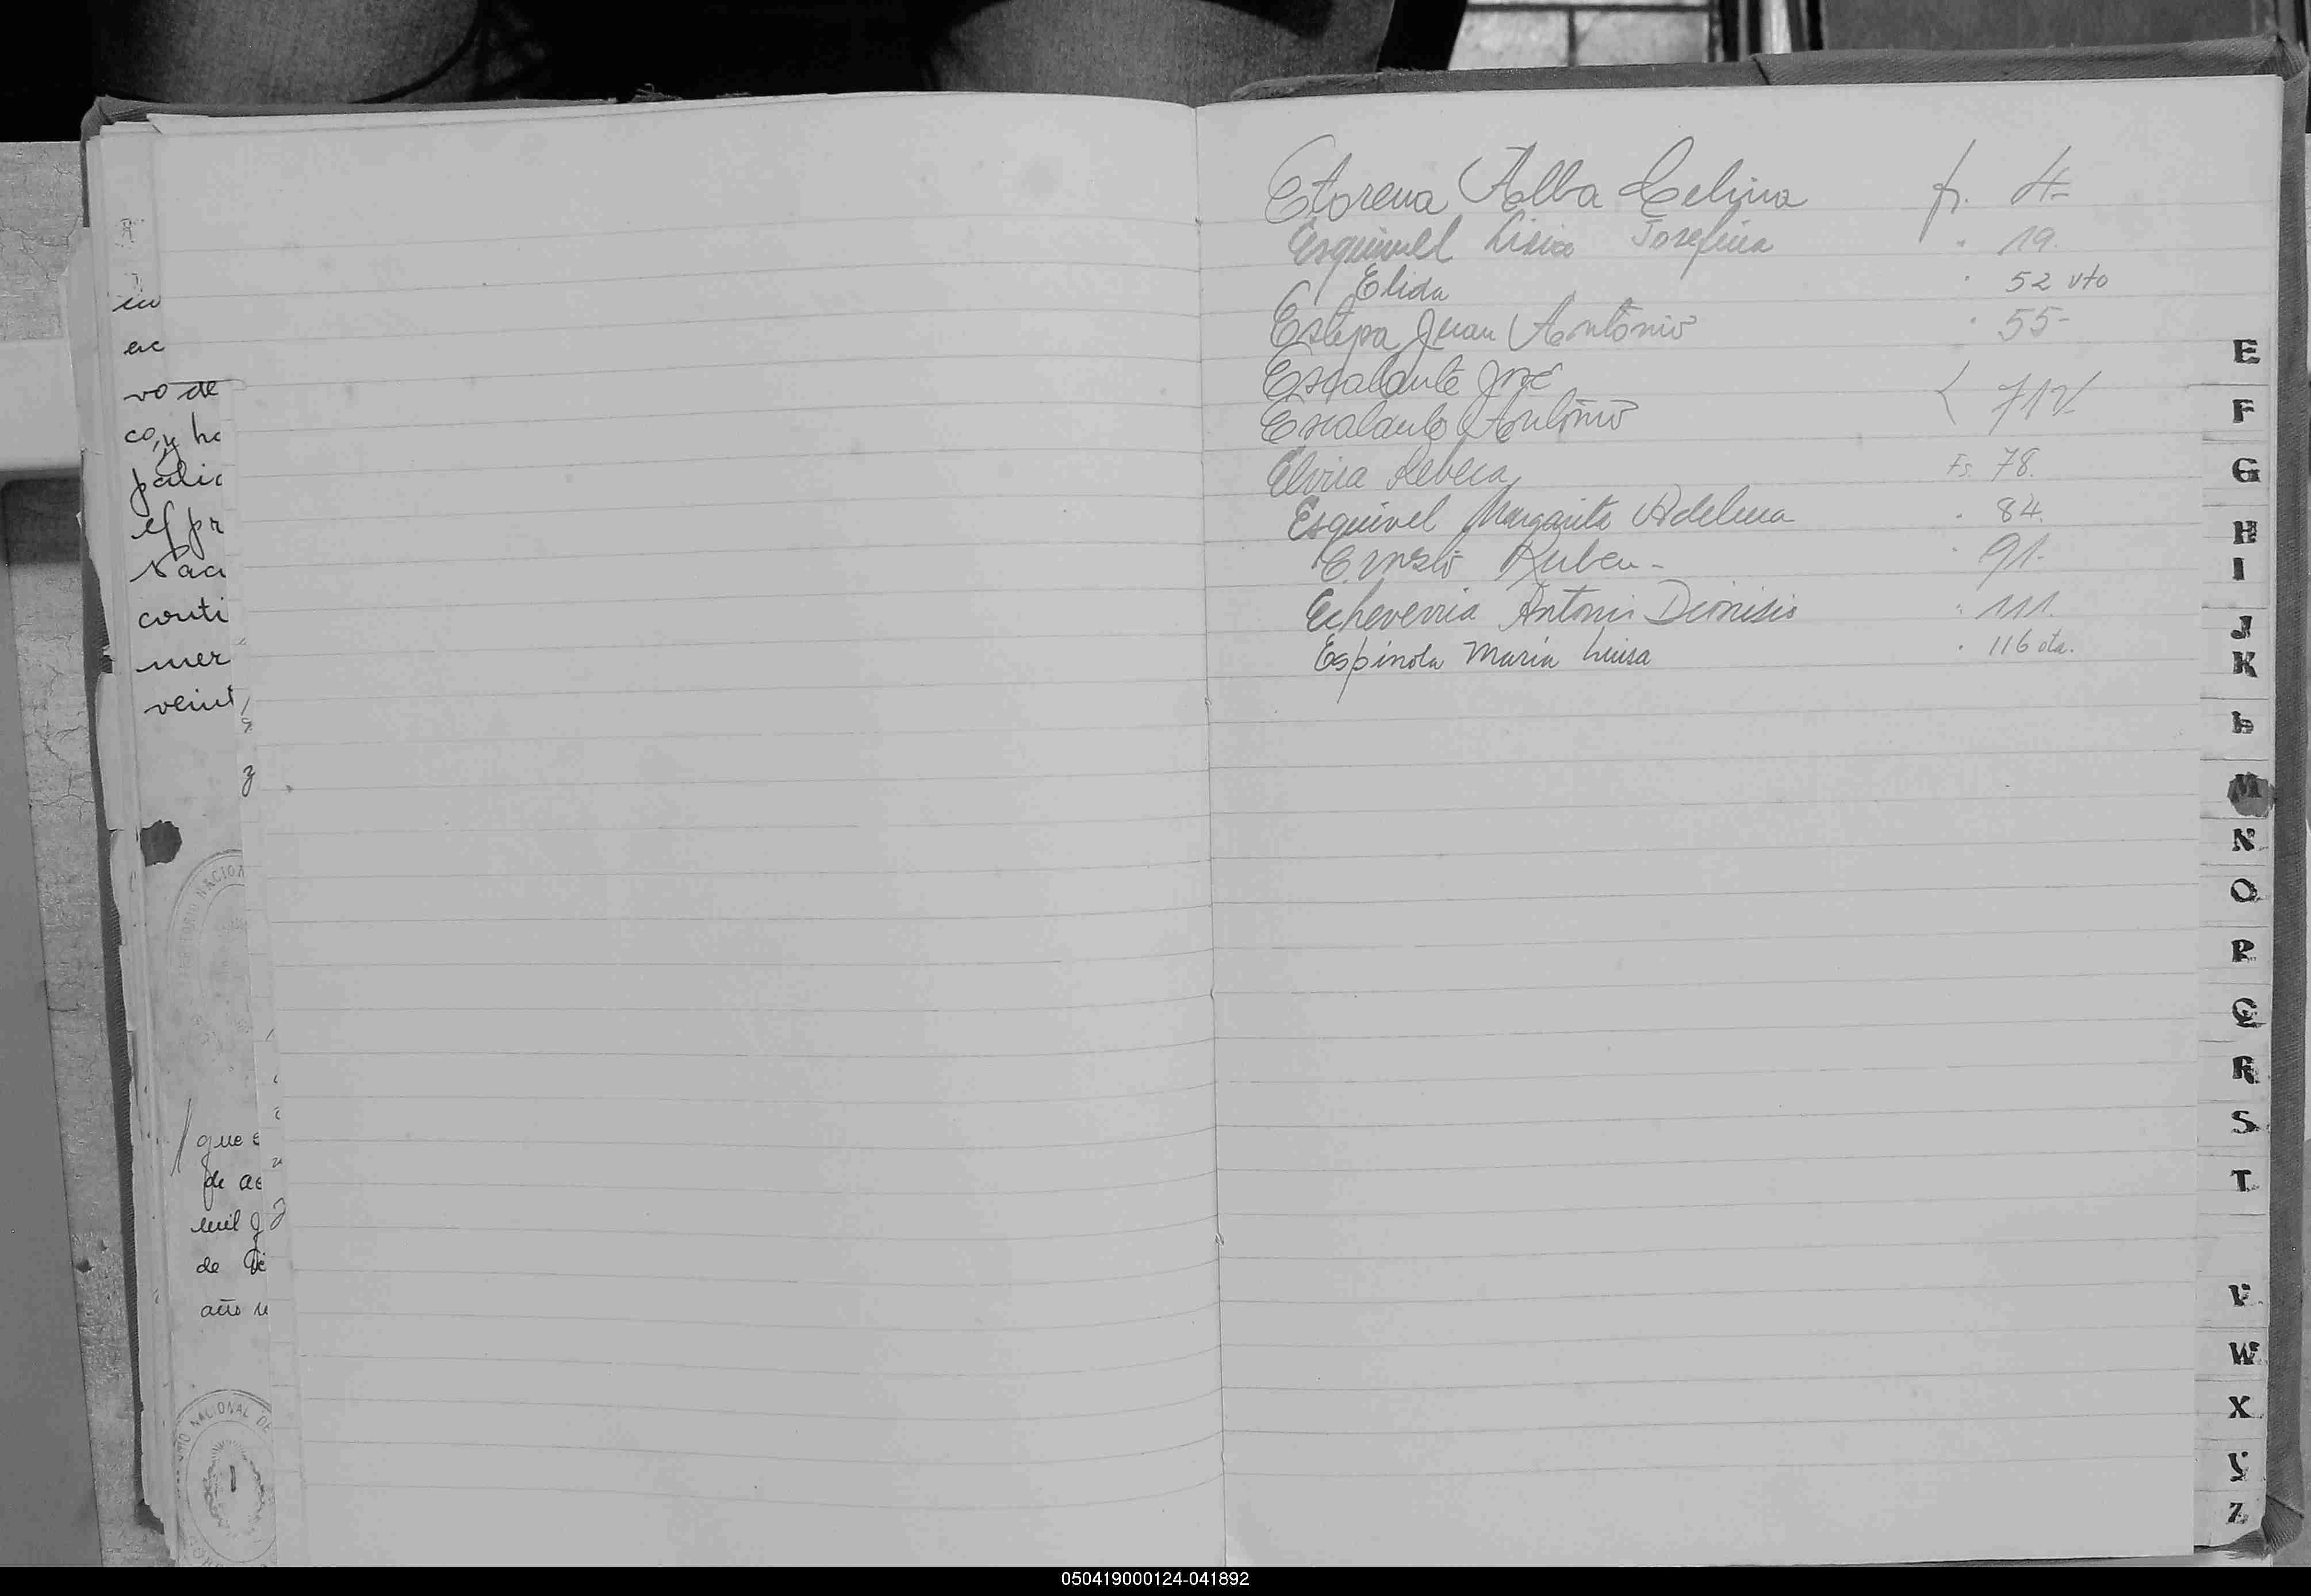 en
ac
vo de
co, y ha
palic
el pr
Naci
conti
mer
veint
NACION
que e
de ac
mil
de
año
NACIONAL DE
Etorena Alba Celina fs. 4-
Esquivel Josefina " 19.
Elida " 52 vto
Estepa Juan Antonio " 55-
Escalante José
Escalante Antonio 71 V
Elvira Rebeca Fs. 78.
Esquivel Margarita Adelina " 84.
Ernesto Ruben - " 91-
Echeverria Antonio Dionisio " 111.
Espinola Maria Luisa " 116 vta.
E
F
G
H
I
J
K
L
M
N
O
P
Q
R
S
T
V
W
X
Y
Z
050419000124-041892